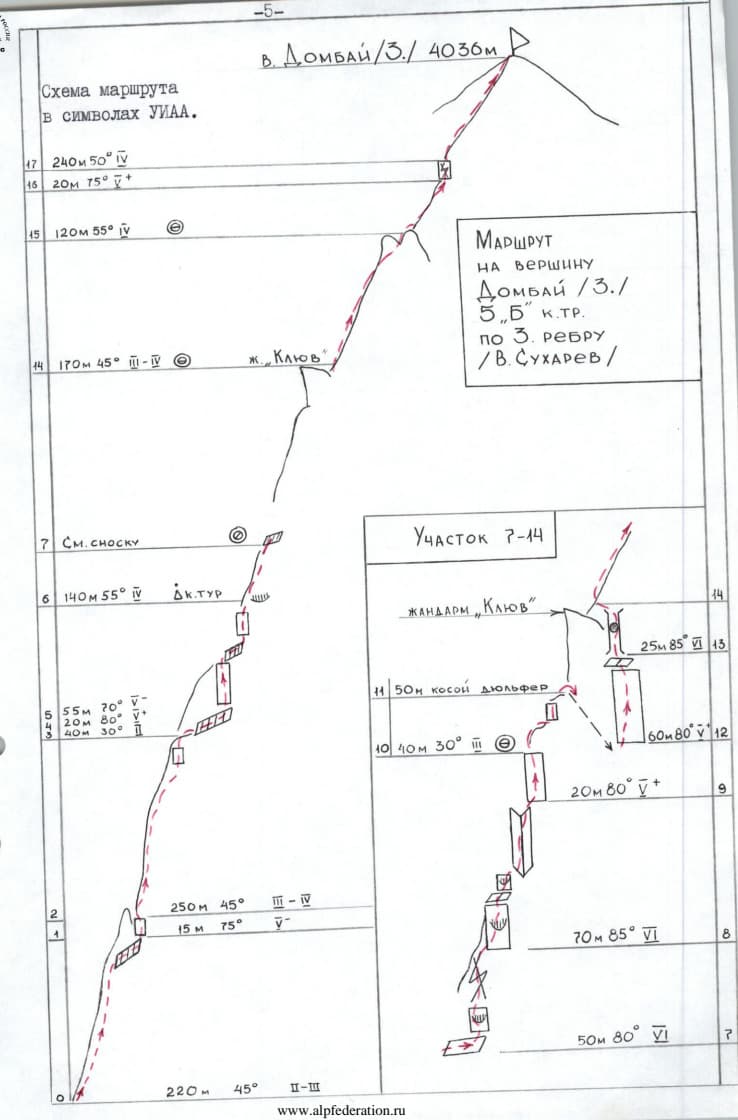 –5–
в. Домбай /З./ 4036м
Схема маршрута
в символах УИАА.
17 240м 50° IV
16 20м 75° V+
15 120м 55° IV
Маршрут
на вершину
Домбай /З./
5 „Б" к.тр.
по З. ребру
/В. Сухарев/
14 170м 45° III–IV
ж. „Клюв"
7 См. сноску
6 140м 55° IV
к.тур
5 55м 70° V-
4 20м 80° V+
3 40м 30° II
2 250м 45° III–IV
1 15м 75° V-
0 220м 45° II–III
Участок 7–14
жандарм „Клюв"
14
25м 85° VI 13
11 50м косой дюльфер
60м 80° V+ 12
10 40м 30° III
20м 80° V+ 9
70м 85° VI 8
50м 80° VI 7
www.alpfederation.ru